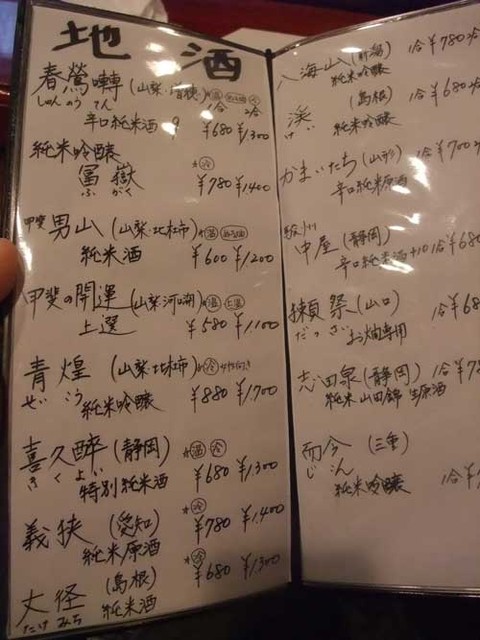 地酒
春鶯囀(山梨・増穂)
しゅんのうてん
1合 2合
辛口純米酒 ¥680 ¥1,300
純米吟醸
冨嶽 ¥780 ¥1400
ふがく
甲斐男山(山梨・北杜市)
純米酒 ¥600 ¥1,200
甲斐の開運(山梨・河口湖)
上選 ¥580 ¥1,100
青煌(山梨・北杜市)
せいこう
純米吟醸 ¥880 ¥1,700
喜久酔(静岡) 温 冷
きくよい
特別純米酒 ¥680 ¥1,300
義侠(愛知) 冷
純米原酒 ¥780 ¥1,400
丈径(島根) 冷
たけみち
純米酒 ¥680 ¥1,300
八海山(新潟) 1合¥780
純米吟醸
渓(島根) 1合¥680
けい
純米吟醸
かまいたち(山形) 1合¥700
辛口純米原酒
駿州
中屋(静岡) 1合¥680
辛口純米酒+10
獺祭(山口) 1合¥68
だっさい お燗専用
志田泉(静岡) 1合
純米山田錦生原酒
而今(三重)
じこん
純米吟醸 1合